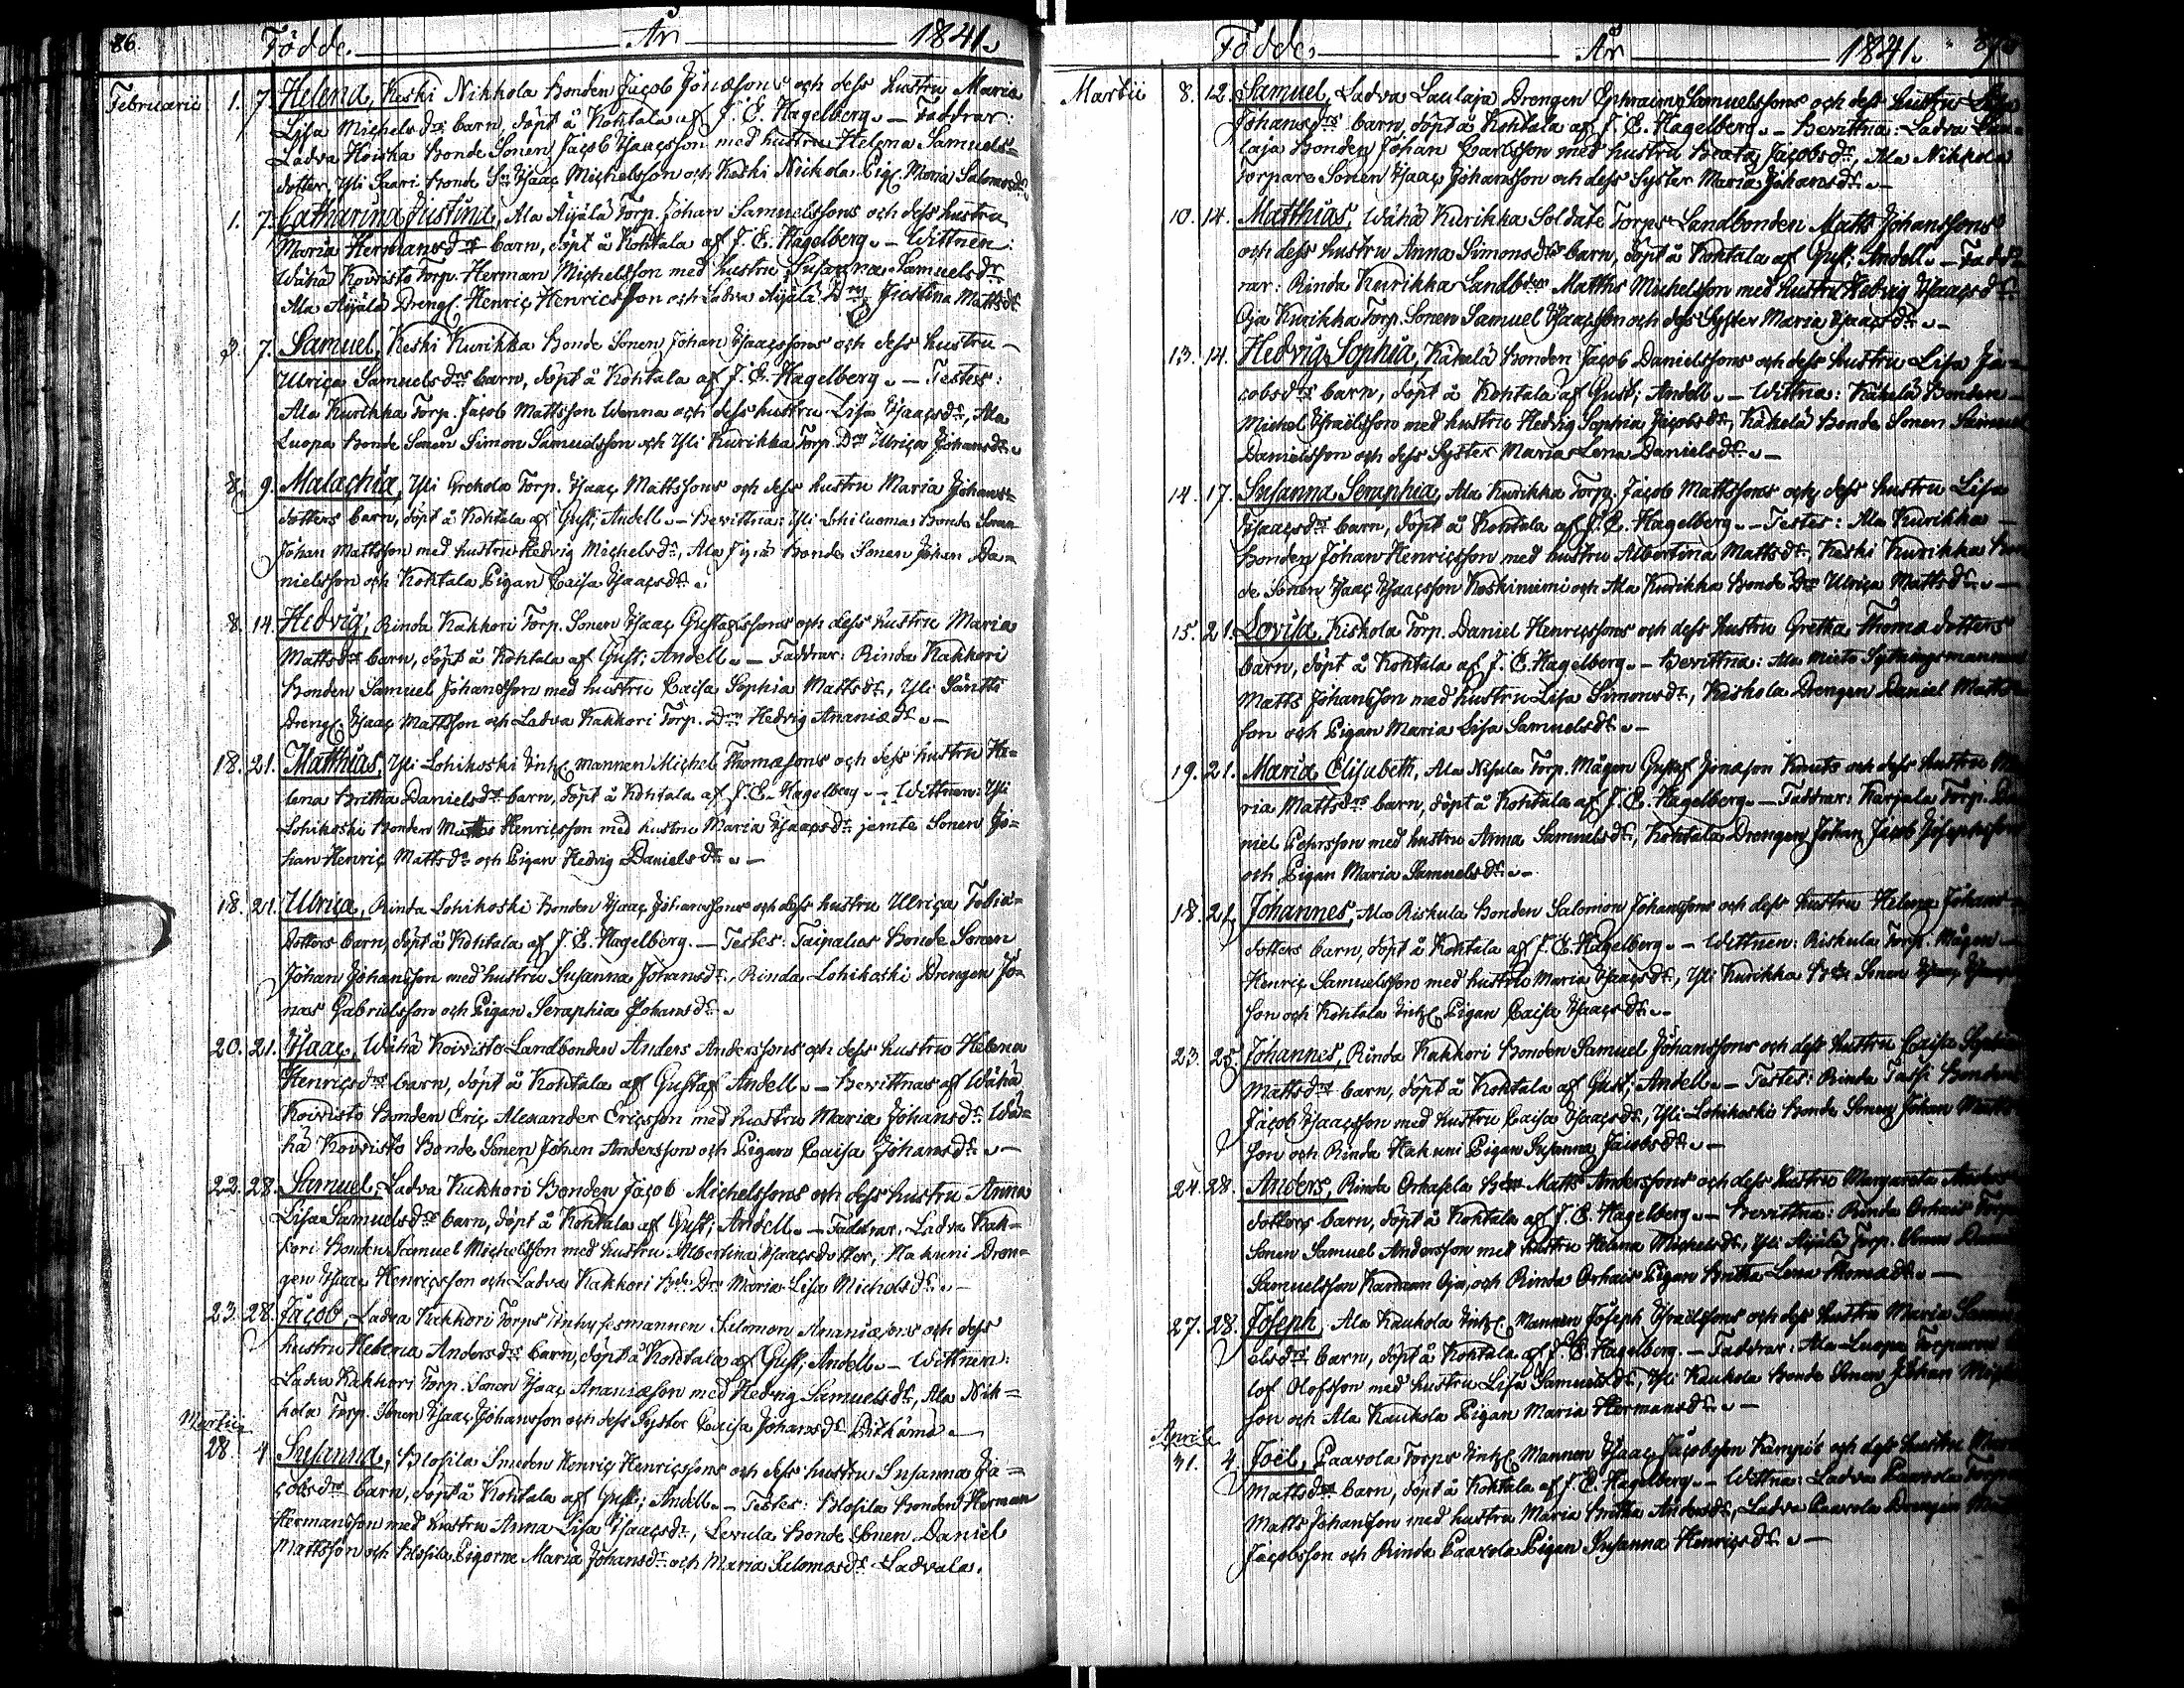 86. Födde År 1841.
Februarii 1. 7. Helena, Keski Nikkola Bonden Jacob Jonæsons och dess hustru Maria
Lisa Michelsdrs barn, döpt å Kohtala af J. E. Hagelberg. – Faddrar:
Ladva Koiska Bonde Sonen Jacob Isaacsson med hustru Helena Samuels=
dotter, Yli Saari Bonde Sn Isaac Michelsson och Keski Nickola Pig. Maria Salomosdr
1. 7. Catharina Justina, Ala Äijälä Torp. Johan Samuelssons och dess hustru
Maria Hermansdrs barn, döpt å Kohtala af J. E. Hagelberg. – Wittnen:
Wähä Koivisto Torp. Herman Michelsson med hustru Susanna Samuelsdr
Ala Äijälä Dreng. Henric Henricsson och Ladva Äijälä Drn Justina Mattsdr.
3. 7. Samuel, Keski Kurikka Bonde Sonen Johan Isaacssons och dess hustru –
Ulrica Samuelsdrs barn, döpt å Kohtala af J. E. Hagelberg. – Testes:
Ala Kurikka Torp. Jacob Mattsson Wenna och dess hustru Lisa Isaacsdr, Ala
Luopa Bonde Sonen Simon Samuelsson och Yli Kurikka Torp. Dr Ulrica Johansdr.
8. 9. Malachia, Yli Grekola Torp. Isaac Mattssons och dess hustru Maria Johans=
dotters barn, döpt å Kohtala af Gust; Andell. – Bevittna: Yli Lohiluoma Bonde Sonen
Johan Mattsson med hustru Hedvig Michelsdr, Ala Jyrä Bonde Sonen Johan Da=
nielsson och Kohtala Pigan Caisa Isaacsdr.
8. 14. Hedvig, Rinda Kakkori Torp. Sonen Isaac Gustafssons och dess hustru Maria
Mattsdrs barn, döpt å Kohtala af Gust; Andell. – Faddrar: Rinda Kakkori
Bonden Samuel Johansson med hustru Caisa Sophia Mattsdr, Yli Säntti
Dreng. Isaac Mattsson och Ladva Kakkori Torp. Drn Hedvig Ananiædr. –
18. 21. Matthias, Yli Lohikoski Inh. mannen Michel Thomæsons och dess hustru He=
lena Britha Danielsdrs barn, döpt å Kohtala af J. E. Hagelberg. – Wittnen: Yli
Lohikoski Bonden Matts Henricsson med hustru Maria Isaacsdr jemte Sonen Jo=
han Henric Mattsdr och Pigan Hedvig Danielsdr. –
18. 21. Ulrica, Rinda Lohikoski Bonden Isaac Johanssons och dess hustru Ulrica Tobiæ=
dotters barn, döpt å Kohtala af J. E. Hagelberg. – Testes: Taipalus Bonde Sonen
Johan Johansson med hustru Susanna Johansdr, Rinda Lohikoski Drengen Jo=
nas Gabrielsson och Pigan Seraphia Johansdr.
20. 21. Isaac, Wähä Koivisto Landbonden Anders Anderssons och dess hustru Helena
Henricsdrs barn, döpt å Kohtala af Gustaf Andell. – Bevittnas af Wähä
Koivisto Bonden Eric Alexander Ericsson med hustru Maria Johansdr Wä=
hä Koivisto Bonde Sonen Johan Andersson och Pigan Caisa Johansdr. –
22. 28. Samuel, Ladva Kakkori Bonden Jacob Michelssons och dess hustru Anna
Lisa Samuelsdrs barn, döpt å Kohtala af Gust; Andell. – Faddrar, Ladva Kak=
kori Bonden Samuel Michelsson med hustru Albertina Isaacsdotter, Hakuni Dren=
gen Isaac Henricsson och Ladva Kakkori Bde Drn Maria Lisa Michelsdr. –
23. 28. Jacob, Ladva Kakkori Torps Inhysesmannen Salomon Ananiæsons och dess
hustru Helena Andersdrs barn, döpt å Kohtala af Gust; Andell. – Wittnen:
Ladva Kakkori Torp. Sonen Isaac Ananiæson med Hedvig Samuelsdr, Ala Nik=
kola Torp. Sonen Isaac Johansson och dess Syster Caisa Johansdr Pitkämö. –
Martii
28. 4. Susanna, Blosila Smeden Henric Henricssons och dess hustru Susanna Ja=
cobsdrs barn, döpt å Kohtala af Gust; Andell. – Testes: Blosila Bonden Herman
Hermansson med hustru Anna Lisa Isaacsdr, Levula Bonde Sonen Daniel
Mattsson och Blosila Pigorne Maria Johansdr och Maria Salomosdr Ladvala.
Födde År 1841.
Martii 8. 12. Samuel, Ladva Laulaja Drengen Ephraim Samuelssons och dess hustru
Johansdrs barn, döpt å Kohtala af J. E. Hagelberg. – Bevittna: Ladva Lau=
laja Bonden Johan Carlsson med hustru Beata Jacobsdr, Ala Nikkola
Torpare Sonen Isaac Johansson och dess Syster Maria Johansdr. –
10. 14. Matthias, Wähä Kurikka Soldate Torps Landbonden Matts Johanssons
och dess hustru Anna Simonsdrs barn, döpt å Kohtala af Gust; Andell. – Fadd=
rar: Rinda Kurikka Landbden Matths Michelsson med hustru Hedvig Isaacsdr.
Oja Kurikka Torp. Sonen Samuel Isaacsson och dess Syster Maria Isaacsdr. –
13. 14. Hedvig Sophia, Käkelä Bonden Jacob Danielssons och dess hustru Lisa Ja=
cobsdrs barn, döpt å Kohtala af Gust; Andell. – Wittna: Käkelä Bonden –
Michel Israelsson med hustru Hedvig Sophia Jacobsdr, Käkelä Bonde Sonen Samuel
Danielsson och dess Syster Maria Lena Danielsdr. –
14. 17. Susanna Seraphia, Ala Kurikka Torp. Jacob Mattssons och dess hustru Lisa
Isaacsdrs barn, döpt å Kohtala af J. E. Hagelberg. – Testes: Ala Kurikka –
Bonden Johan Henricsson med hustru Albertina Mattsdr, Keski Kurikka Bon
de Sonen Isaac Isaacsson Koskinemi och Ala Kurikka Bonde Drn Ulrica Mattsdr. –
15. 21. Lovisa, Kiskola Torp. Daniel Henricssons och dess hustru Gretha Thomædotters
barn, döpt å Kohtala af J. E. Hagelberg. – Bevittna: Ala Mieto Sytningsmannen
Matts Johansson med hustru Lisa Simonsdr, Kiskola Drengen Daniel Matts
son och Pigan Maria Lisa Samuelsdr. –
19. 21. Maria Elisabeth, Ala Nisula Torp. Mågen Gustaf Jonæson Kouets och dess hustru Ma
ria Mattsdrs barn, döpt å Kohtala af J. E. Hagelberg. – Faddrar: Karjala Torp. Da
niel Pehrsson med hustru Anna Samuelsdr, Kohtala Drengen Johan Jacob Josephsson
och Pigan Maria Samuelsdr. –
18. 21. Johannes, Ala Riskula Bonden Salomon Johanssons och dess hustru Helena Johans=
dotters barn, döpt å Kohtala af J. E. Hagelberg. – Wittnen: Riskula Torp. Mågen
Henric Samuelsson med hustru Maria Isaacsdr, Yli Kurikka Bde Sonen Isaac Isaacs
son och Kohtala Inh. Pigan Caisa Isaacsdr. –
23. 25. Johannes, Rinda Kakkori Bonden Samuel Johanssons och dess hustru Caisa Sophia
Mattsdrs barn, döpt å Kohtala af Gust; Andell. – Testes: Rinda Tassi Bonden
Jacob Isaacsson med hustru Caisa Isaacsdr, Yli Lohikoski Bonde Sonen Johan Matts
son och Rinda Hakuni Pigan Susanna Jacobsdr. –
24. 28. Anders, Rinda Orhasela Bden Matts Anderssons och dess hustru Margareta Anders
dotters barn, döpt å Kohtala af J. E. Hagelberg. – Bevittna: Rinda Orhais Torp
Sonen Samuel Andersson med hustru Helena Michelsdr, Yli Äijälä Torp. Sonen
Samuelsson Karman Oja, och Rinda Orhais Pigan Britha Lena Thomædr. –
27. 28. Joseph, Ala Kaukola Inh. Mannen Joseph Israelssons och dess hustru Maria Samu
elsdrs barn, döpt å Kohtala af J. E. Hagelberg. – Faddrar: Ala Luopa Torparen
lof Olofsson med hustru Lisa Samuelsdr, Yli Kaukola Bonde Sonen Johan
son och Ala Kaukola Pigan Maria Hermansdr. –
Aprili
31. 4. Joël, Paavola Torps Inh. Mannen Isaac Jacobsson Kämpis och dess hustru
Mattsdrs barn, döpt å Kohtala af J. E. Hagelberg. – Wittna: Ladva Paavola
Matts Johansson med hustru Maria Britha Andersdr, Ladva Paavola Drengen
Jacobsson och Rinda Paavola Pigan Susanna Henricsdr. –